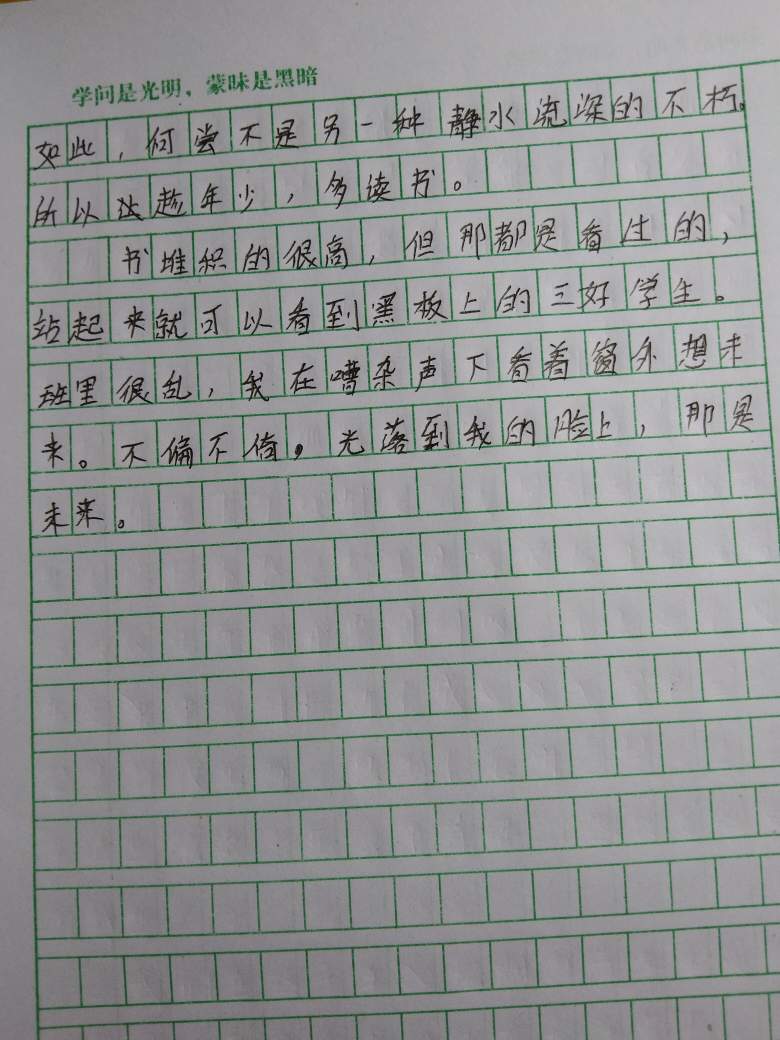 学问是光明，蒙昧是黑暗
如此，何尝不是另一种静水流深的不朽。
所以说趁年少，多读书。
书堆积的很高，但那都是看过的，
站起来就可以看到黑板上的三好学生。
班里很乱，我在嘈杂声下看着窗外想未
来。不偏不倚，光落到我的脸上，那是
未来。